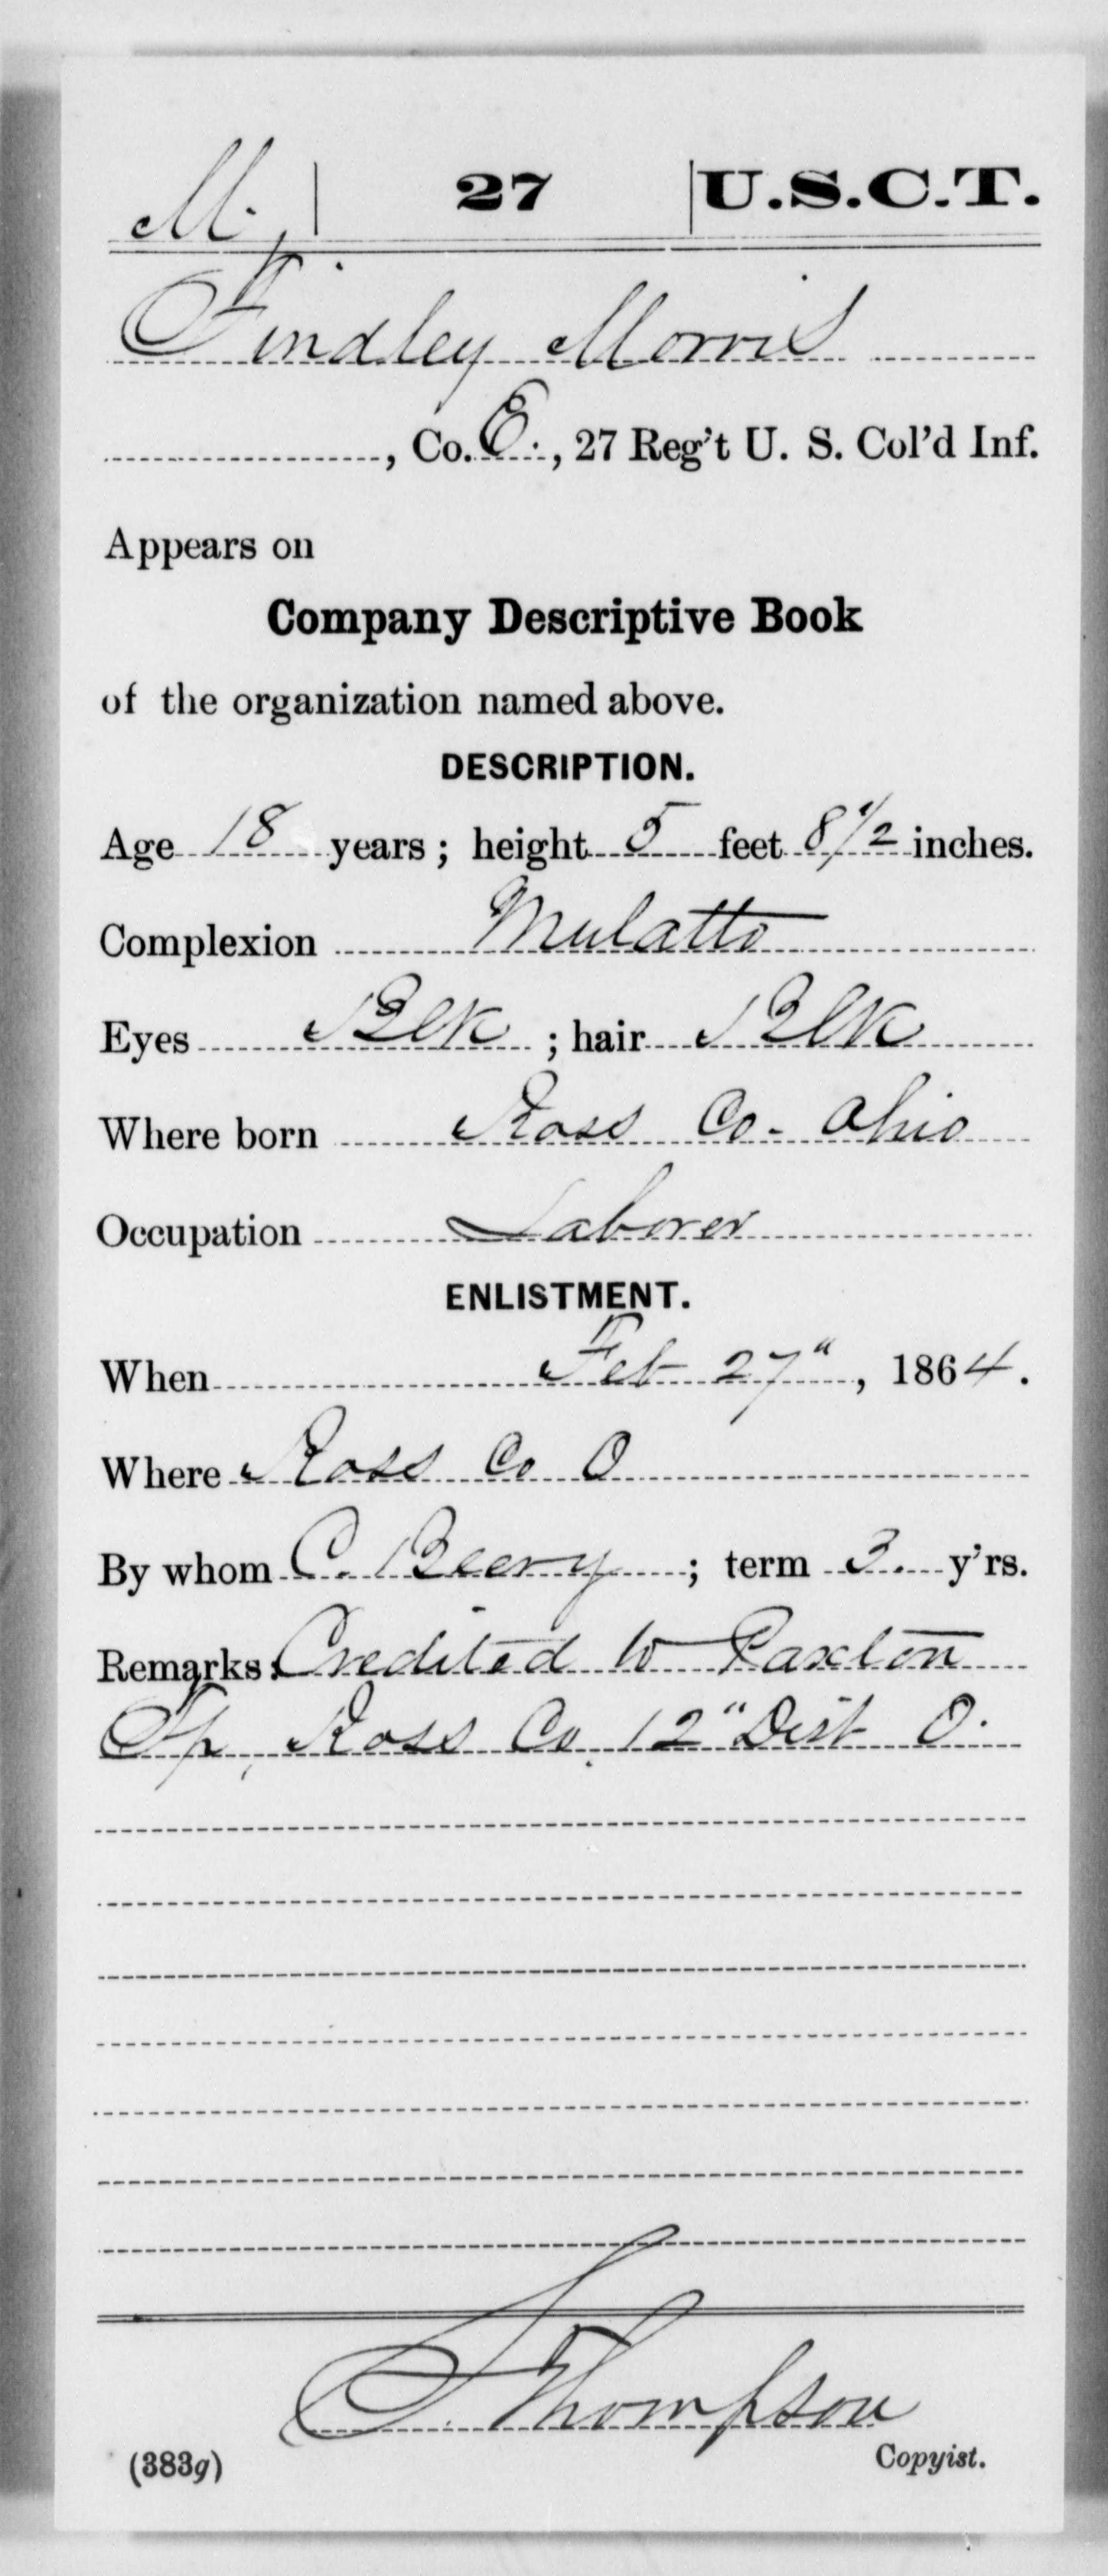 M. | 27 | U.S.C.T.
Findley Morris
, Co. E., 27 Reg't U. S. Col'd Inf.
Appears on
Company Descriptive Book
of the organization named above.
DESCRIPTION.
Age 18 years; height 5 feet 8 1/2 inches.
Complexion Mulatto
Eyes Blk ; hair Blk
Where born Ross Co. Ohio
Occupation Laborer
ENLISTMENT.
When Feb 27", 1864.
Where Ross Co O
By whom C. Beery ; term 3 y'rs.
Remarks: Credited to Paxton
Tp, Ross Co. 12" Dist O.
Thompson
(383g) Copyist.